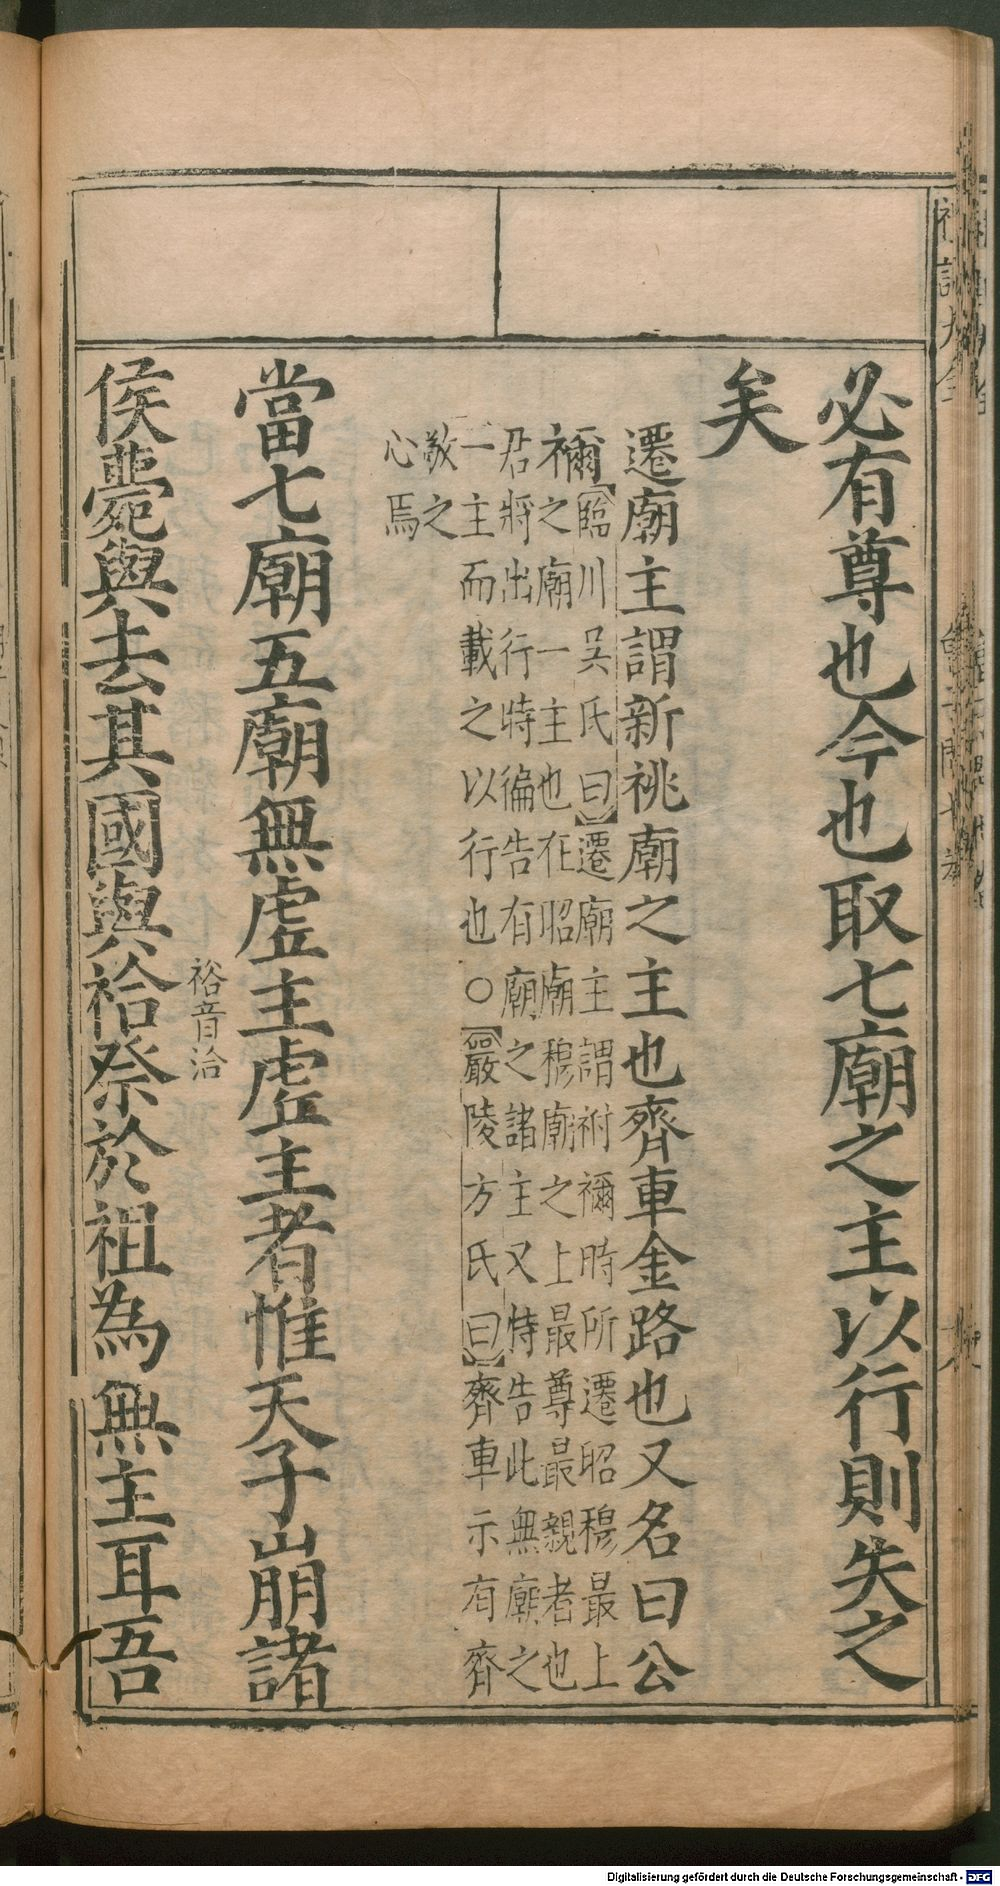 必有尊也今也取七廟之主以行則失之
矣
遷廟主謂新祧廟之主也齊車金路也又名曰公
禰【臨川吳氏曰】遷廟主謂祔禰時所遷昭穆最上
之廟一主也在昭廟穆廟之上最尊最親者也
君將出行時徧告有廟之諸主又特告此無廟之
一主而載之以行也○【嚴陵方氏曰】齊車示有齊
敬之
心焉
當七廟五廟無虛主虛主者惟天子崩諸
祫音洽
侯薨與去其國與祫祭於祖為無主耳吾
Digitalisierung gefördert durch die Deutsche Forschungsgemeinschaft - DFG